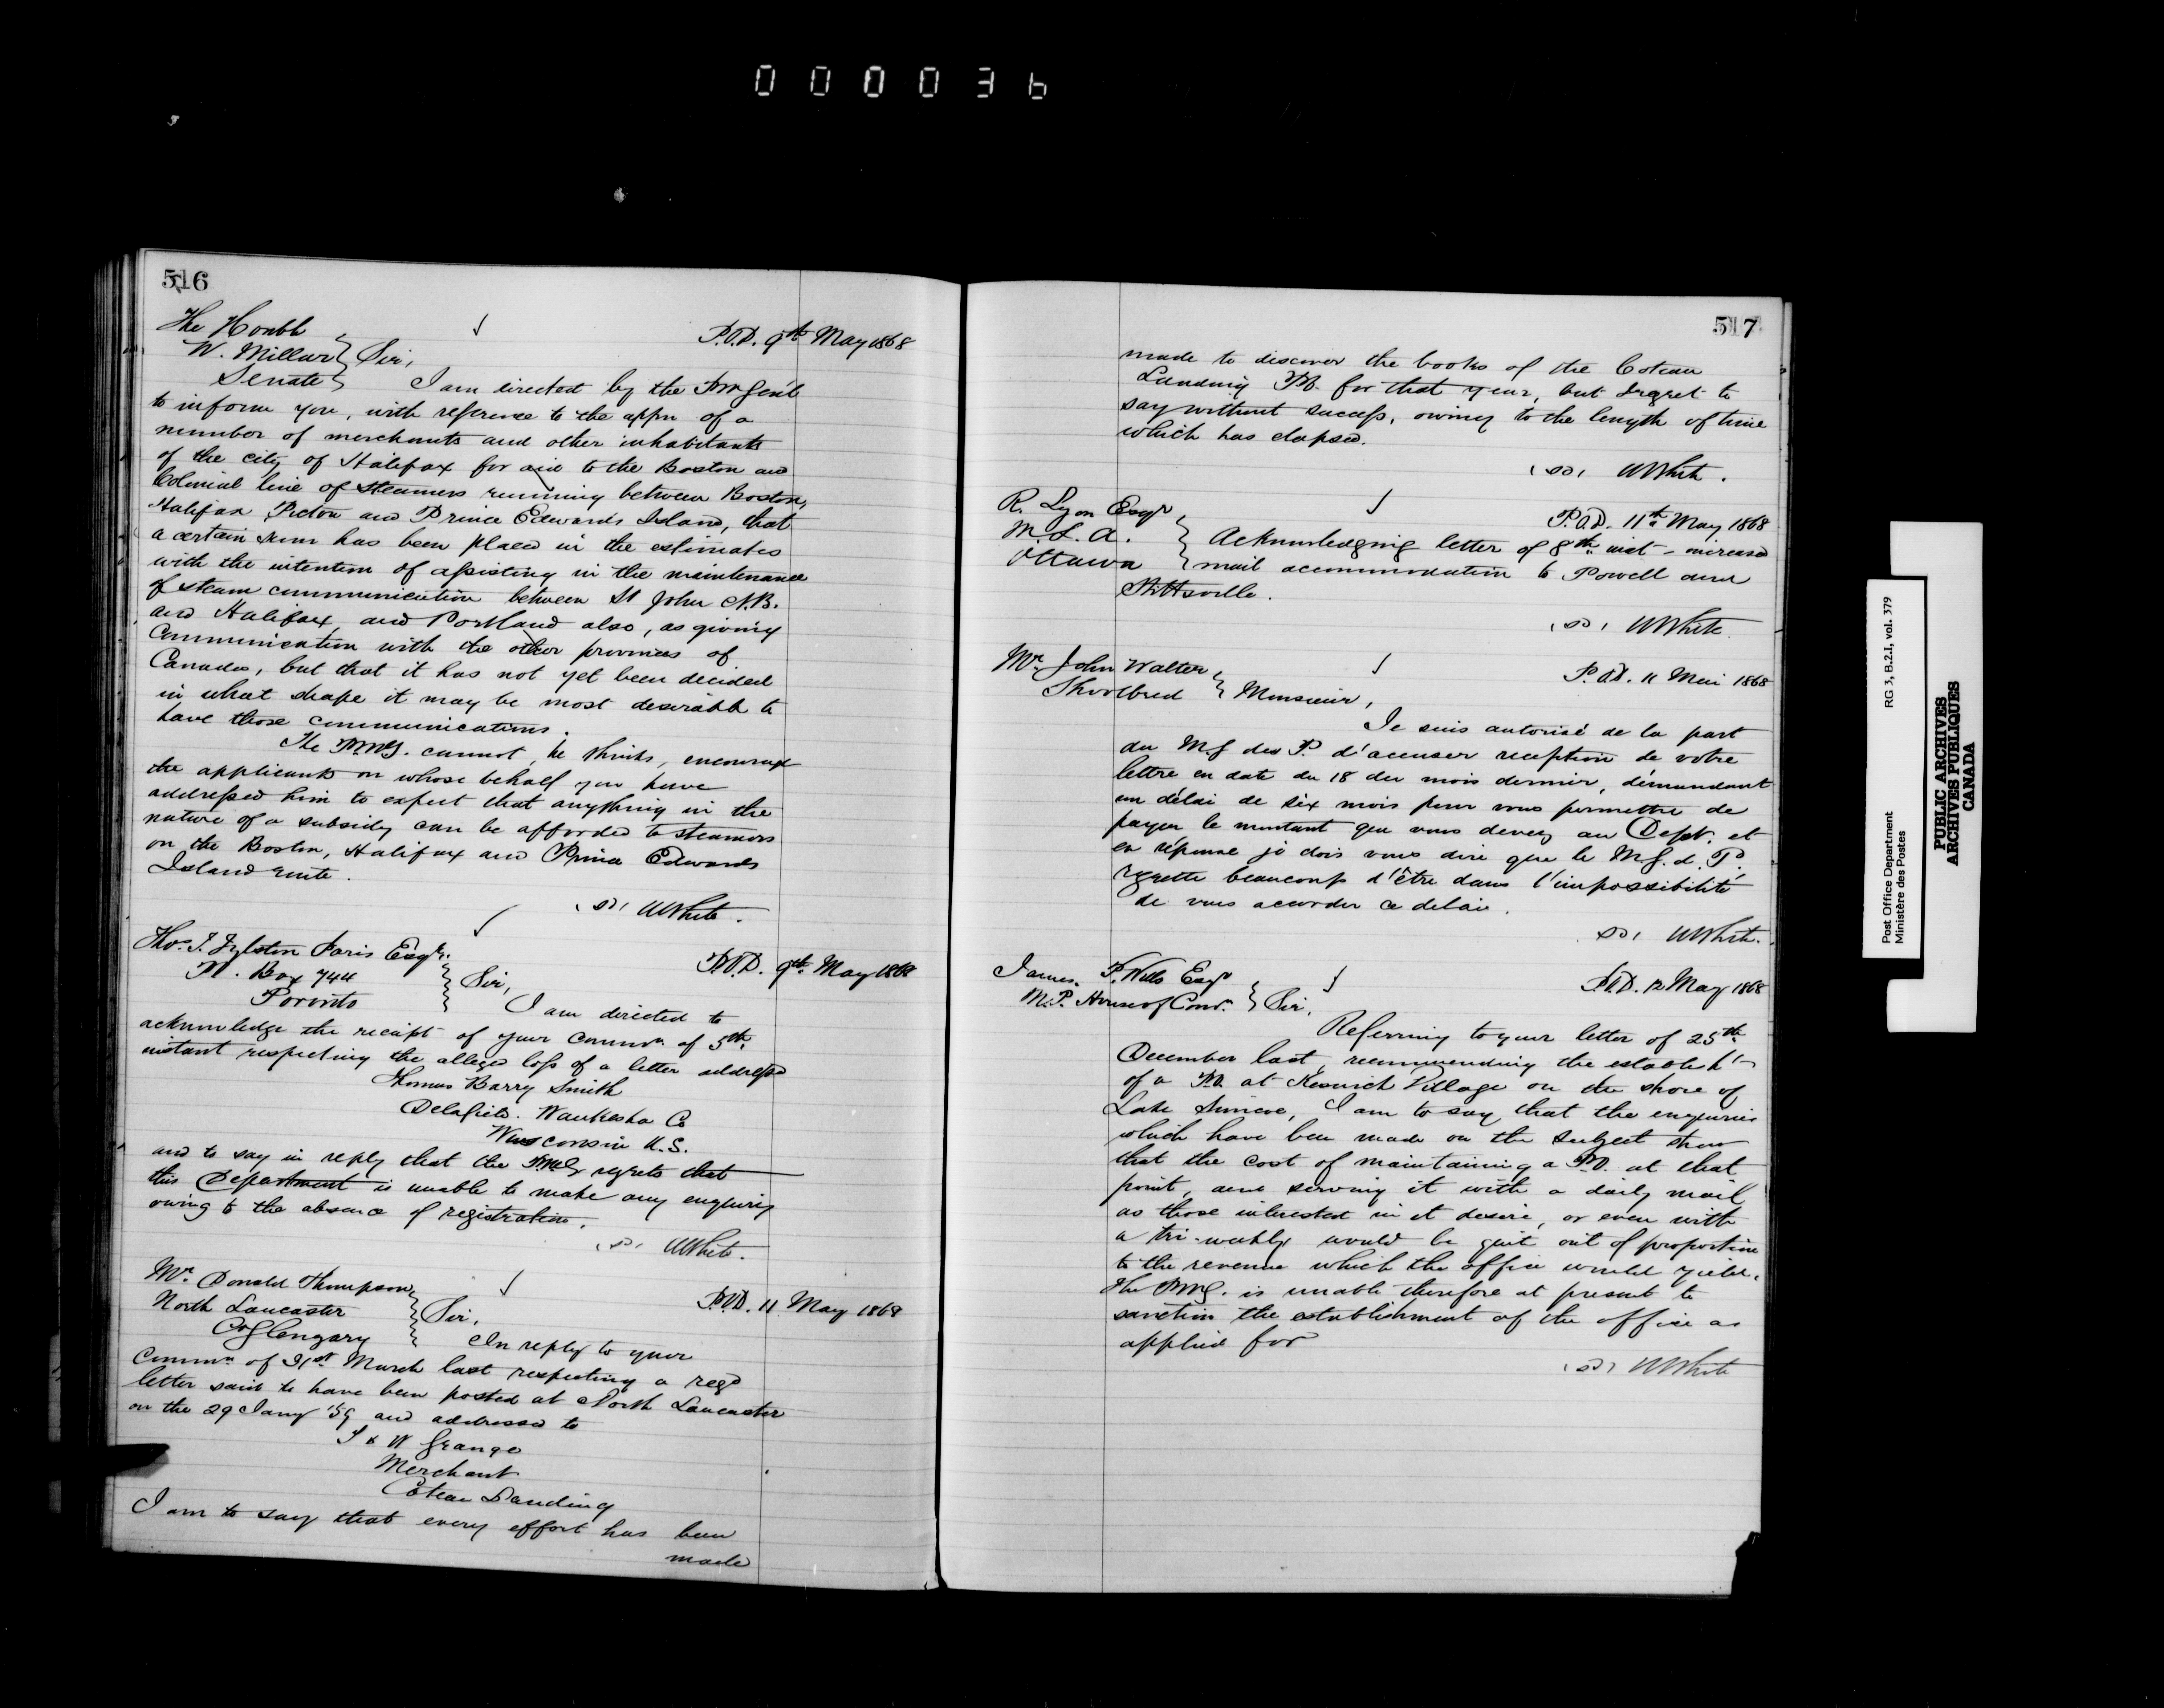 000036
516
The Honble
W. Millar
Senate
Sir,
P.O.D. 9th May 1868
I am directed by the PMGenl
to inform you, with reference to the appn of a
number of merchants and other inhabitants
of the city of Halifax for aid to the Boston and
Colonial line of steamers running between Boston,
Halifax Pictou and Prince Edwards Island, that
a certain sum has been placed in the estimates
with the intention of assisting in the maintenance
of steam communication between St John N.B.
and Halifax, and Portland also, as giving
communication with the other provinces of
Canada, but that it has not yet been decided
in what shape it may be most desirable to
have those communications.
The P.M.G. cannot, he thinks, encourage
the applicants on whose behalf you have
addressed him to expect that anything in the
nature of a subsidy can be afforded to steamers
on the Boston, Halifax and Prince Edwards
Island route.
(sd) WWhite.
Thos. Faris Esqr.
P.O. Box 744
Toronto
Sir,
P.O.D. 9th May 1868
I am directed to
acknowledge the receipt of your commn of 5th
instant respecting the alleged loss of a letter addressd
Thomas Barry Smith
Delafield. Waukesha Co
Wisconsin U.S.
and to say in reply that the P.M.G. regrets that
this Department is unable to make any enquiry
owing to the absence of registration.
(sd) WWhite.
Mr. Donald Thompson
North Lancaster
Co Glengary
Sir,
P.O.D. 11 May 1868
In reply to your
Commn of 31st March last respecting a regd
letter said to have been posted at North Lancaster
on the 29 Jany '59 and addressed to
J & W Grange
Merchant
Coteau Landing
I am to say that every effort has been
made
517
made to discover the books of the Coteau
Landing P.O. for that year, but regret to
say without success, owing to the length of time
which has elapsed.
(sd) WWhite.
R. Lyon Esqr
M.L.A.
Ottawa
P.O.D. 11th May 1868
Acknowledging letter of 8th inst - increased
mail accommodation to Powell and
Stittsville.
(sd) WWhite.
Mr. John Walter
Shoolbred
Monsieur,
P.O.D. 11 Mai 1868
Je suis autorisé de la part
du M.G des P. d'accuser reception de votre
lettre en date du 18 du mois dernier, démandant
un délai de six mois pour vous permettre de
payer le montant que vous devez au Dept. et
en réponse je dois vous dire que le M.G. d. P.
regrette beaucoup d'être dans l'impossibilité
de vous accorder ce delai.
(sd) WWhite.
James P. Wells Esqr
M.P. House of Comr.
Sir,
P.O.D. 12 May 1868
Referring to your letter of 25th
December last, recommending the establisht
of a P.O. at Keswick Village on the shore of
Lake Simcoe, I am to say that the enquiries
which have been made on the subject show
that the cost of maintaining a P.O. at that
point, and serving it with a daily mail
as those interested in it desire, or even with
a tri-weekly would be quit out of proportion
to the revenue which the office would yield.
The P.M.G. is unable therefore at present to
sanction the establishment of the office as
applied for
(sd) WWhite
Post Office Department
Ministère des Postes
RG 3, B.2.I, vol. 379
PUBLIC ARCHIVES
ARCHIVES PUBLIQUES
CANADA